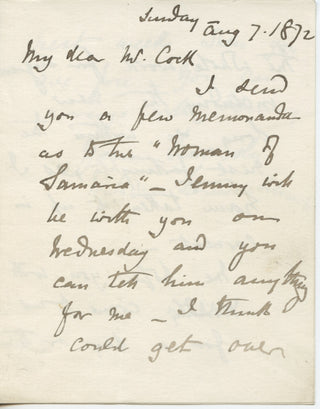 Sunday
Aug 7. 1872
My dear Mr. Cock
I send
you a few memoranda
as to the "Woman of
Samaria" — Jemmy will
be with you on
Wednesday and you
can tell him anything
for me — I think
could get over